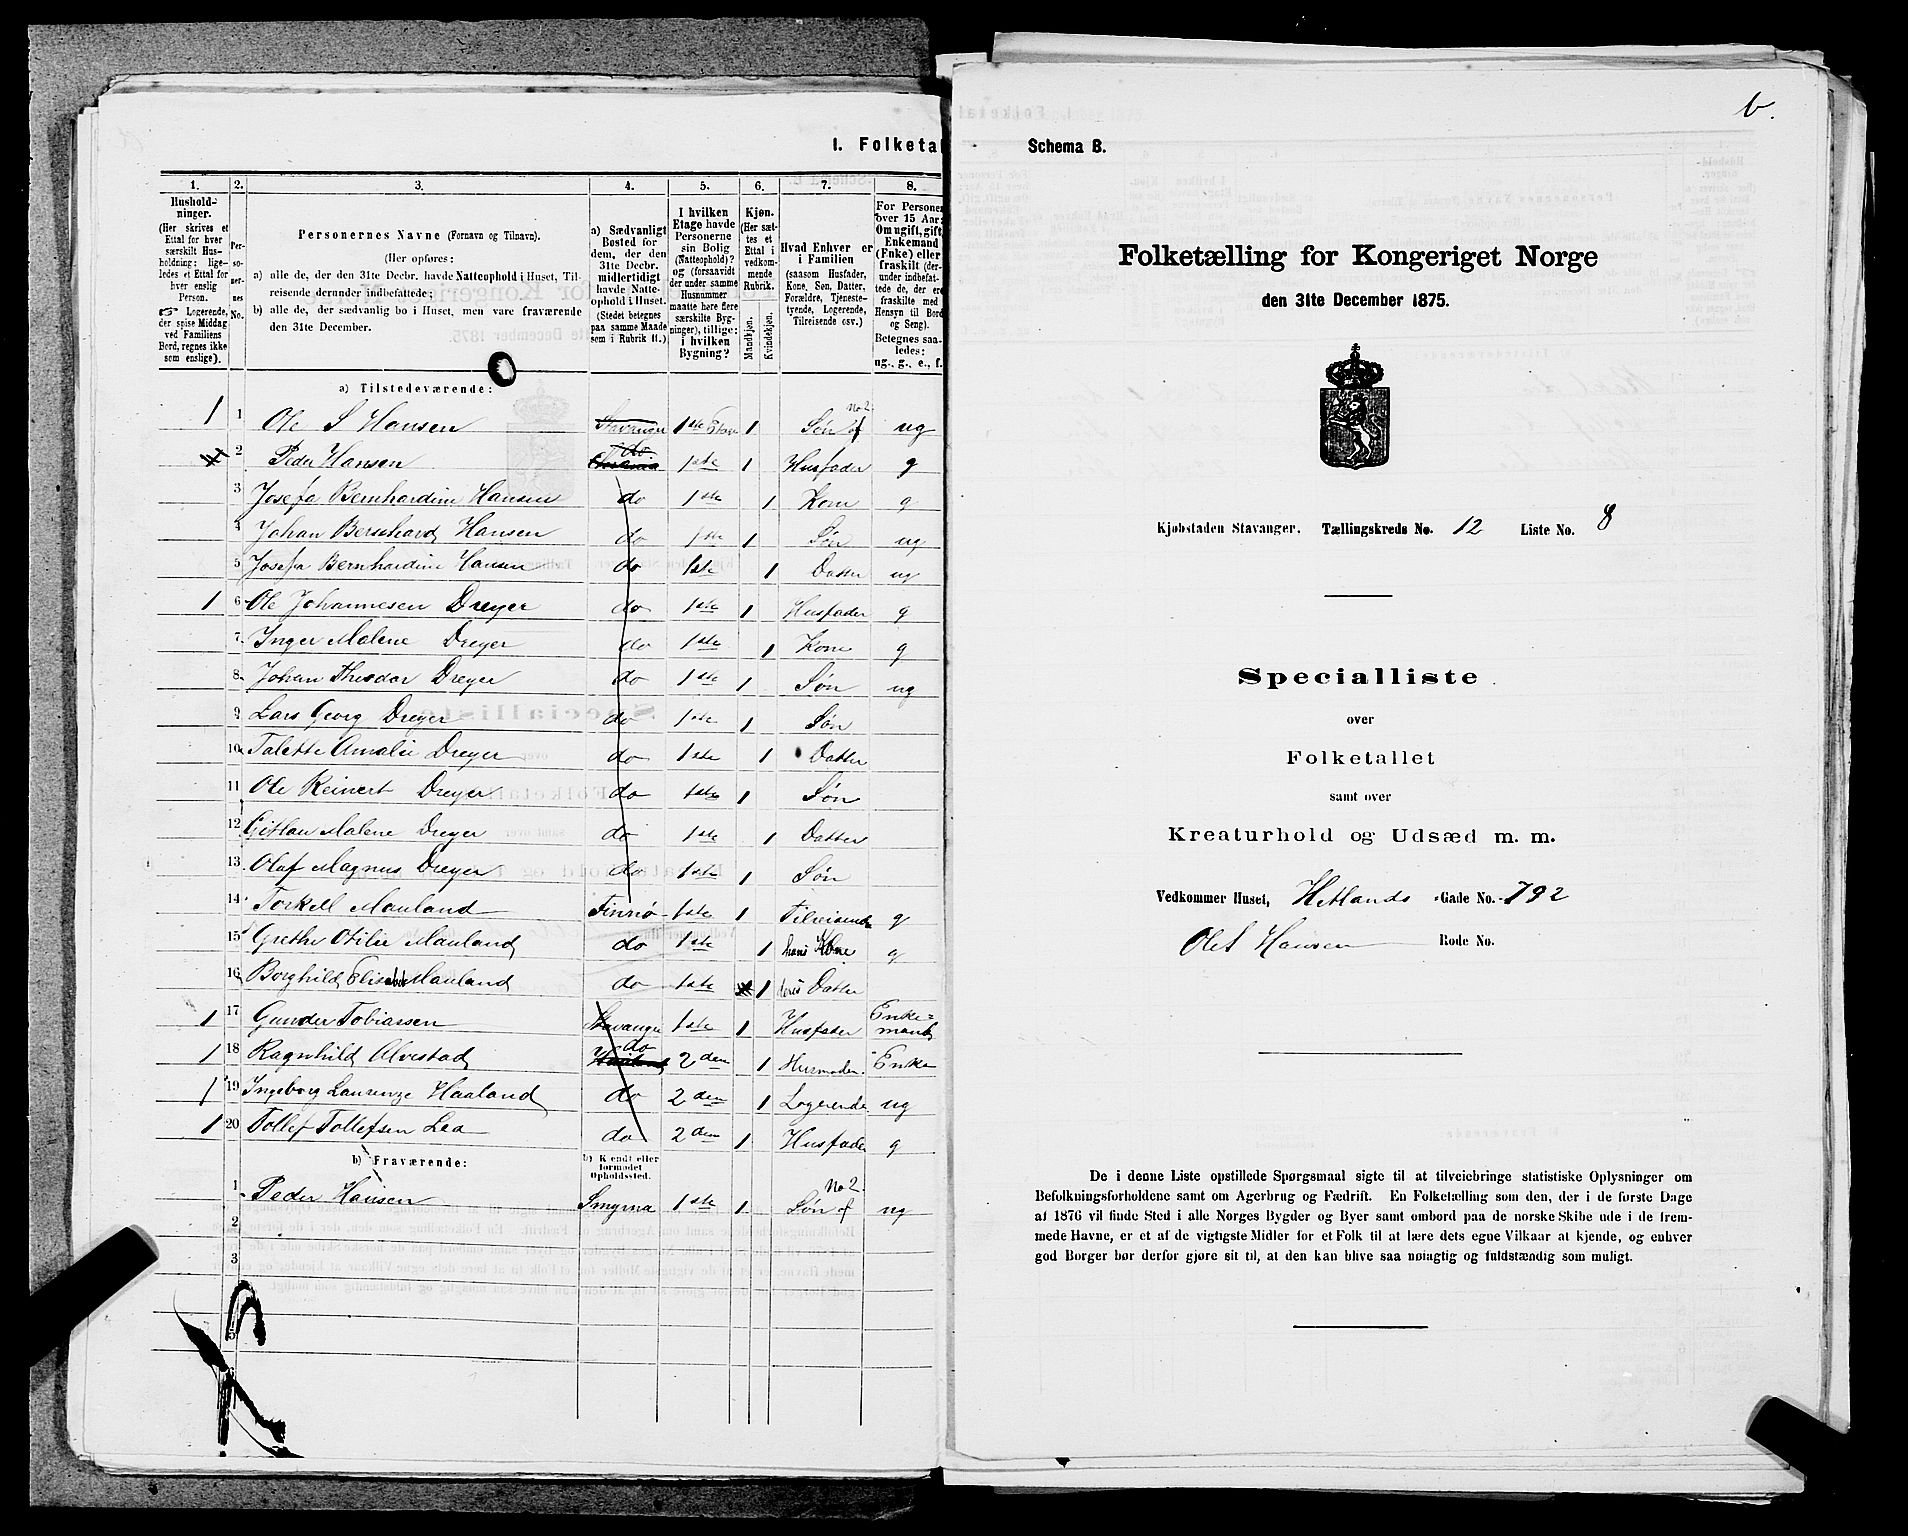 I. Folketal
1. 2. 3. 4. 5. 6. 7. 8.
Hushold-
ninger.
(Her skrives et
Ettal for hver
særskilt Hus-
holdning; lige-
ledes et Ettal for
hver enslig
Person.
☞ Logerende,
der spise Middag
ved Familiens
Bord, regnes ikke
som enslige).
Per-
so-
ner-
nes
No.
Personernes Navne (Fornavn og Tilnavn).
(Her opføres:
a) alle de, der den 31te Decbr. havde Natteophold i Huset, Til-
reisende derunder indbefattede;
b) alle de, der sædvanlig bo i Huset, men vare fraværende
den 31te December.
a) Sædvanligt
Bosted for
dem, der den
31te Decbr.
midlertidigt
havde Natte-
ophold i Huset.
(Stedet betegnes
paa samme Maade
som i Rubrik 11.)
I hvilken
Etage havde
Personerne
sin Bolig
(Natteophold)?
og (forsaavidt
der under samme
Husnummer
maatte høre flere
særskilte Byg-
ninger), tillige:
i hvilken
Bygning?
Kjøn.
(Her sæt-
tes et
Ettal i
vedkom-
mende
Rubrik.
Mandkjøn.
Kvindekjøn.
Hvad Enhver er
i Familien
(saasom Husfader,
Kone, Søn, Datter,
Forældre, Tjeneste-
tyende, Logerende,
Tilreisende osv.)
For Personer
over 15 Aar:
Om ugift, gift,
Enkemand
(Enke) eller
fraskilt (der-
under indbefat-
tede de, der ere
fraskilte med
Hensyn til Bord
og Seng).
Betegnes saa-
ledes:
ug., g., e., f.
a) Tilstedeværende:
1 1 Ole S Hansen Stavanger 1ste Etage 1 Søn af No 2 ug
2 Peder Hansen do 1ste 1 Husfader g
3 Josefa Bernhardine Hansen do 1ste 1 Kone g
4 Johan Bernhard Hansen do 1ste 1 Søn ug
5 Josefa Bernhardine Hansen do 1ste 1 Datter ug
1 6 Ole Johannesen Dreyer do 1ste 1 Husfader g
7 Inger Malene Dreyer do 1ste 1 Kone g
8 Johan Theodor Dreyer do 1ste 1 Søn ug
9 Lars Georg Dreyer do 1ste 1 Søn
10 Talette Amalie Dreyer do 1ste 1 Datter
11 Ole Reinert Dreyer do 1ste 1 Søn
12 Malene Dreyer do 1ste 1 Datter
13 Olaf Magnus Dreyer do 1ste 1 Søn
14 Torkell Mauland Finnø 1ste 1 Tilreisende g
15 Grethe Otilie Mauland do 1ste 1 hans Kone g
16 Borghild Elisabet Mauland do 1ste 1 deres Datter
1 17 Gunder Tobiassen Stavanger 1ste 1 Husfader Enke=
mand
1 18 Ragnhild Alvestad do 2den 1 Husmoder Enke
1 19 Ingeborg Laurenze Haaland do 2den 1 Logerende ug
1 20 Tollef Tollefsen Lea do 2den 1 Husfader g
b) Fraværende:
b) Kendt eller
formodet
Opholdssted.
1 Peder Hansen Smyrna 1ste 1 Søn af No 2 ug
2
3
5
6.
Schema B.
Folketælling for Kongeriget Norge
den 31te December 1875.
Kjøbstaden Stavanger. Tællingskreds No. 12 Liste No. 8
Specialliste
over
Folketallet
samt over
Kreaturhold og Udsæd m. m.
Vedkommer Huset, Hetlands Gade No. 792
Ole S Hansen Rode No.
De i denne Liste opstillede Spørgsmaal sigte til at tilveiebringe statistiske Oplysninger om
Befolkningsforholdene samt om Agerbrug og Fædrift. En Folketælling som den, der i de første Dage
af 1876 vil finde Sted i alle Norges Bygder og Byer samt ombord paa de norske Skibe ude i de frem-
mede Havne, er et af de vigtigste Midler for et Folk til at lære dets egne Vilkaar at kjende, og enhver
god Borger bør derfor gjøre sit til, at den kan blive saa nøiagtig og fuldstændig som muligt.